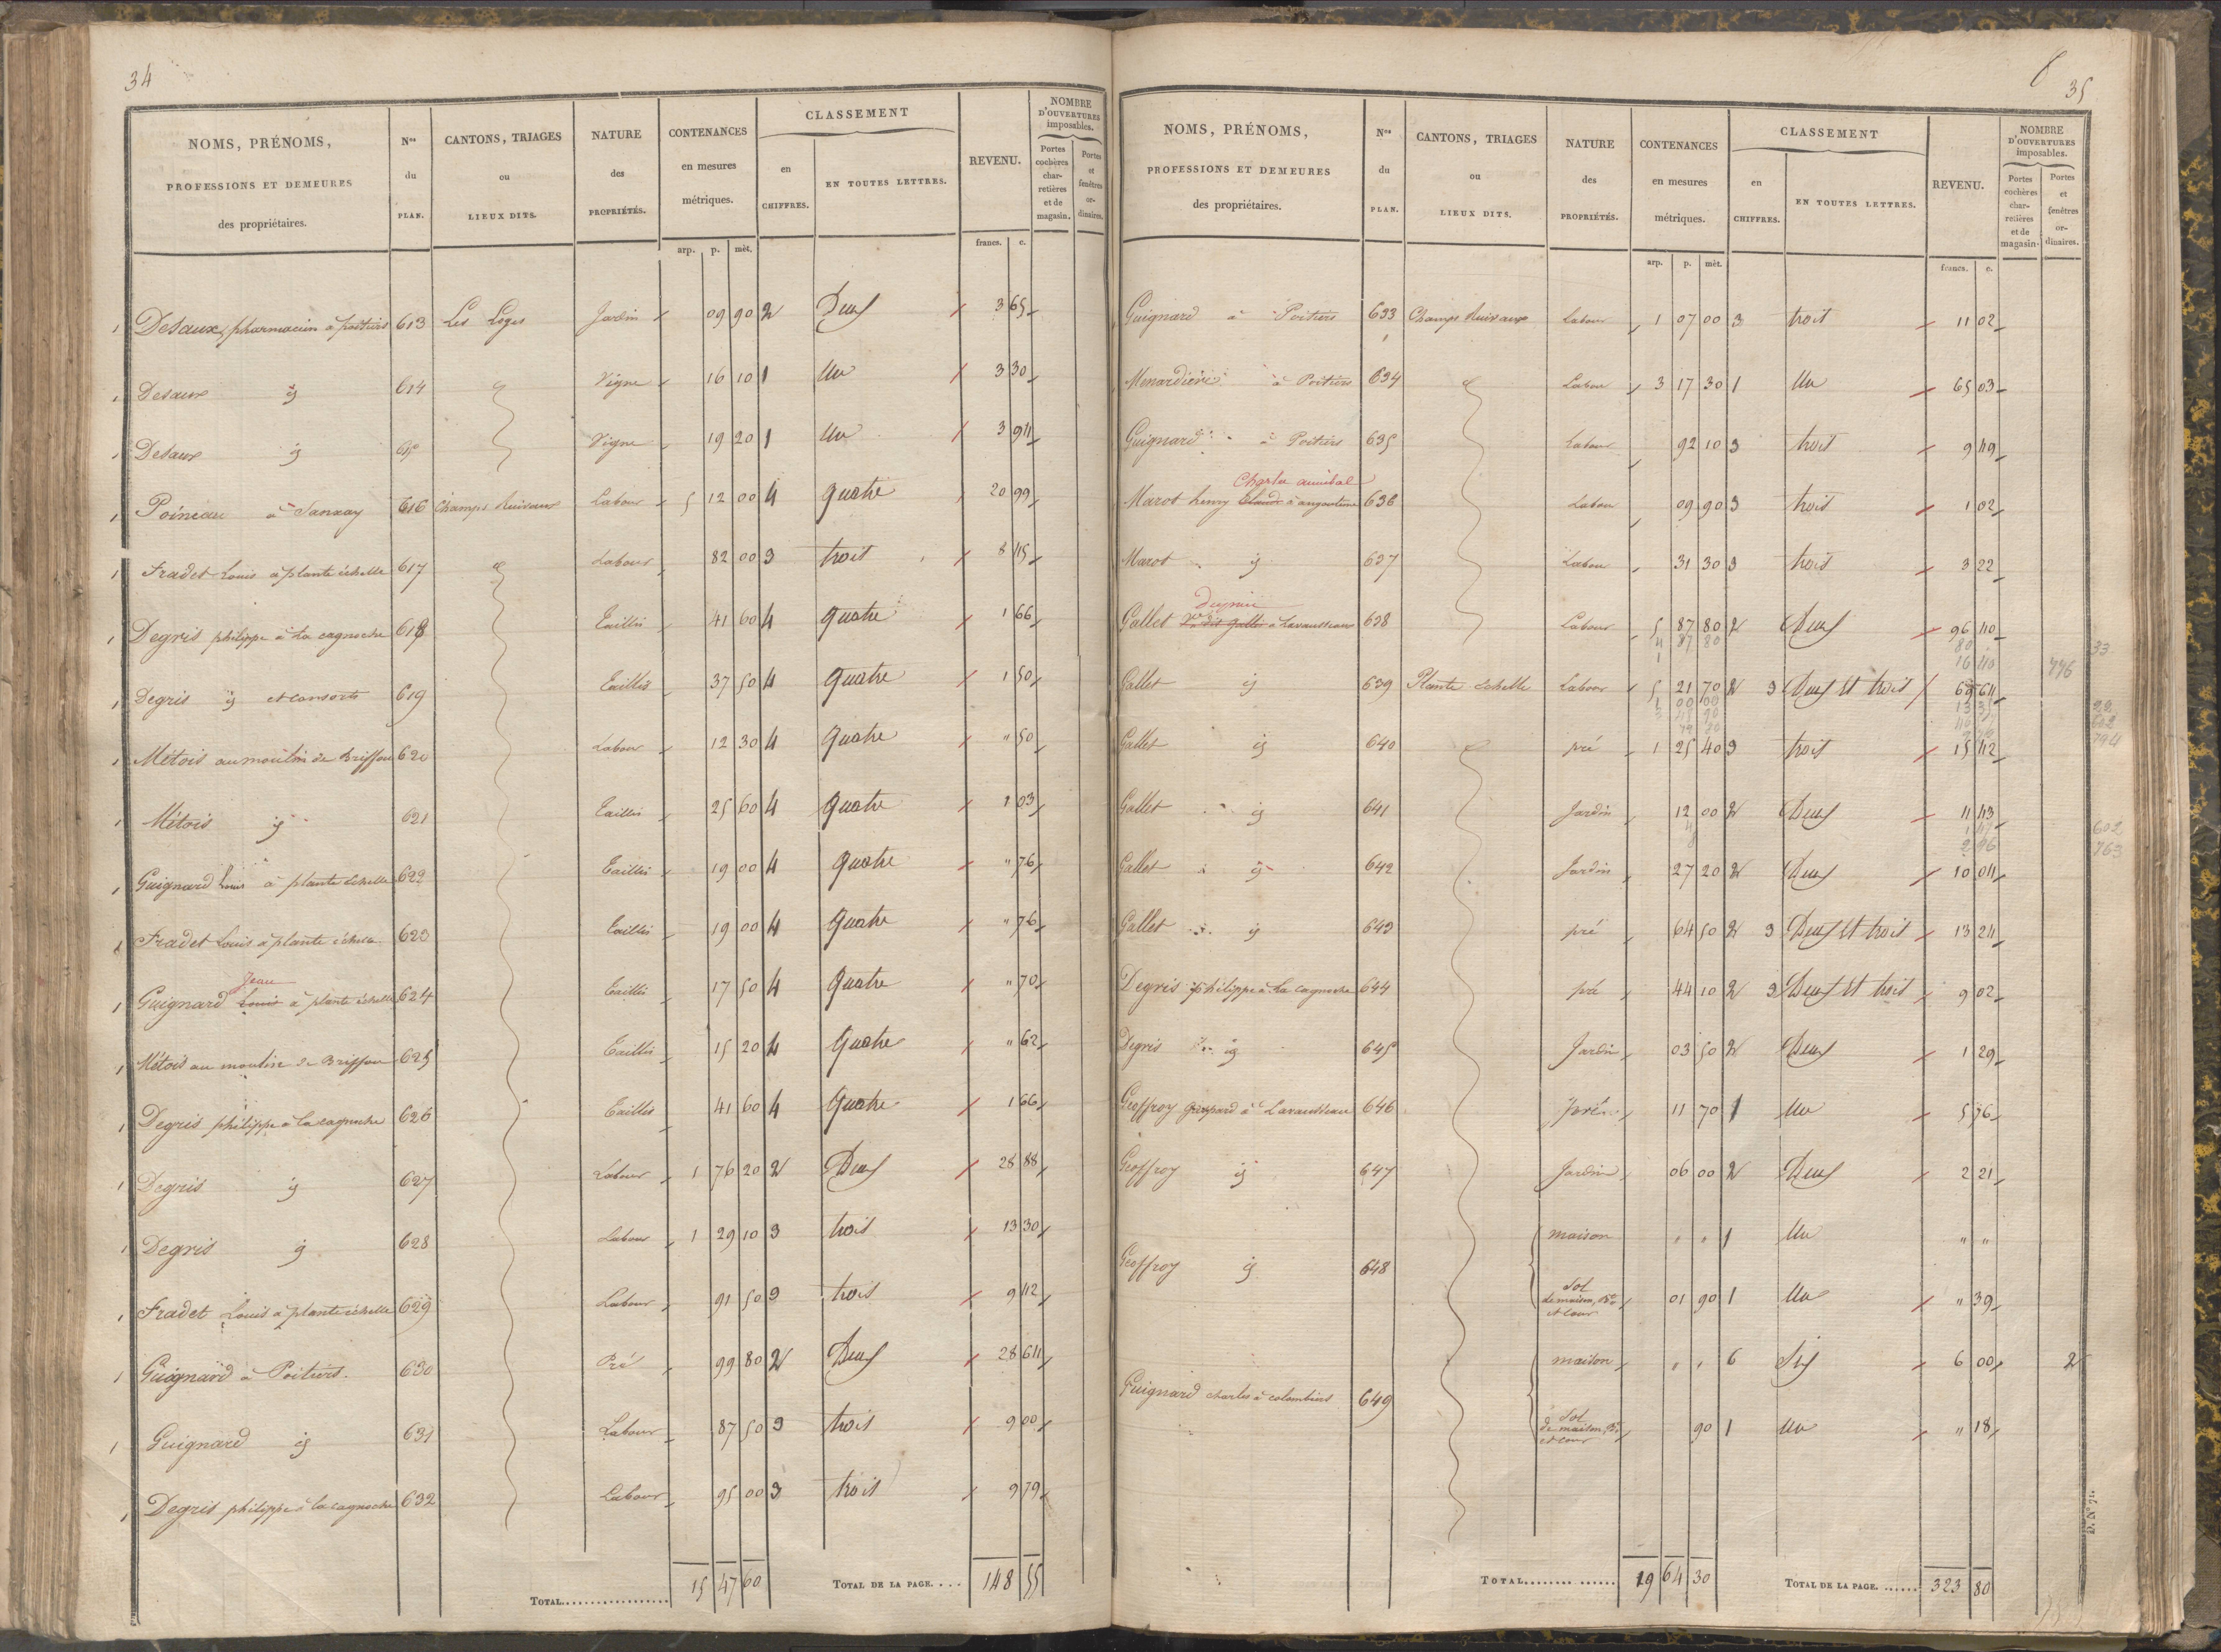 34
NOMS, PRÉNOMS, PROFESSIONS ET DEMEURES des propriétaires. Nos du PLAN. CANTONS, TRIAGES ou LIEUX DITS. NATURE des PROPRIÉTÉS. CONTENANCES en mesures métriques. CLASSEMENT en CHIFFRES. EN TOUTES LETTRES. REVENU. NOMBRE D'OUVERTURES imposables. Portes cochères charretières et de magasin. Portes et fenêtres ordinaires.
arp. p. mèt. francs. c.
Desaux, pharmacien à poitiers 613 Les Loges Jardin 09 90 2 Deux 3 65
Desaux id 614 Vigne 16 10 1 Un 3 30
Desaux id 615 Vigne 19 20 1 Un 3 94
Poineau à Sanxay 616 Champs Ruisseaux Labour 5 12 00 4 quatre 20 99
Fradet Louis à plante échelle 617 Labour 82 00 3 trois 8 45
Degris philippe à la cagnoche 618 Taillis 41 60 4 quatre 1 66
Degris id et consorts 619 Taillis 37 50 4 quatre 1 50
Métois au moulin de Briffou 620 Labour 12 30 4 quatre " 50
Métois id 621 Taillis 25 60 4 quatre 1 03
Guignard Louis à plante échelle 622 Taillis 19 00 4 quatre " 76
Fradet Louis à plante échelle 623 Taillis 19 00 4 quatre " 76
Jean
Guignard Louis à plante échelle 624 Taillis 17 50 4 quatre " 70
Métois au moulin de Briffou 625 Taillis 15 20 4 quatre " 62
Degris philippe à la cagnoche 626 Taillis 41 60 4 quatre 1 66
Degris id 627 Labour 1 76 20 2 Deux 28 88
Degris id 628 Labour 1 29 10 3 trois 13 30
Fradet Louis à plante échelle 629 Labour 91 50 3 trois 9 42
Guignard à Poitiers. 630 Pré 99 80 2 Deux 28 64
Guignard id 631 Labour 87 50 3 trois 9 00
Degris philippe à la cagnoche 632 Labour 95 00 3 trois 9 79
TOTAL 15 47 60 TOTAL DE LA PAGE.... 148 55
35
NOMS, PRÉNOMS, PROFESSIONS ET DEMEURES des propriétaires. Nos du PLAN. CANTONS, TRIAGES ou LIEUX DITS. NATURE des PROPRIÉTÉS. CONTENANCES en mesures métriques. CLASSEMENT en CHIFFRES. EN TOUTES LETTRES. REVENU. NOMBRE D'OUVERTURES imposables. Portes cochères charretières et de magasin. Portes et fenêtres ordinaires.
arp. p. mèt. francs. c.
Guignard à Poitiers 633 Champs Ruisseaux Labour 1 07 00 3 trois 11 02
Menardière à Poitiers 634 Labour 3 17 30 1 Un 65 03
Guignard à Poitiers 635 Labour 92 10 3 trois 9 49
Charles annibal
Marot henry Claude à angoulême 636 Labour 09 90 3 trois 1 02
Marot id 637 Labour 31 30 3 trois 3 22
Gallet à Lavausseau 638 Labour 5 87 80 2 Deux 96 40
4 87 80
1 16 40 33
Gallet id 639 Plante Echelle Labour 5 21 70 2 3 Deux et trois 69 64 776
Gallet id 640 pré 1 25 40 3 trois 15 42 794
Gallet id 641 Jardin 12 00 2 Deux 4 43
602
2 96 763
Gallet id 642 Jardin 27 20 2 Deux 10 04
Gallet id 643 pré 64 50 2 3 Deux et trois 13 24
Degris philippe à la cagnoche 644 pré 44 10 2 3 Deux et trois 9 02
Degris id 645 Jardin 03 50 2 Deux 1 29
Geoffroy gaspard à Lavausseau 646 pré 11 70 1 Un 5 76
Geoffroy id 647 Jardin 06 00 2 Deux 2 21
Geoffroy id 648 maison " " 1 Un " "
Sol de maison, Bt et cour 01 90 1 Un " 39
Guignard charles à colombiers 649 maison " " 6 Six 6 00 2
Sol de maison, Bt et cour 90 1 Un " 18
TOTAL 19 64 30 TOTAL DE LA PAGE. 323 80
D. N° 71.